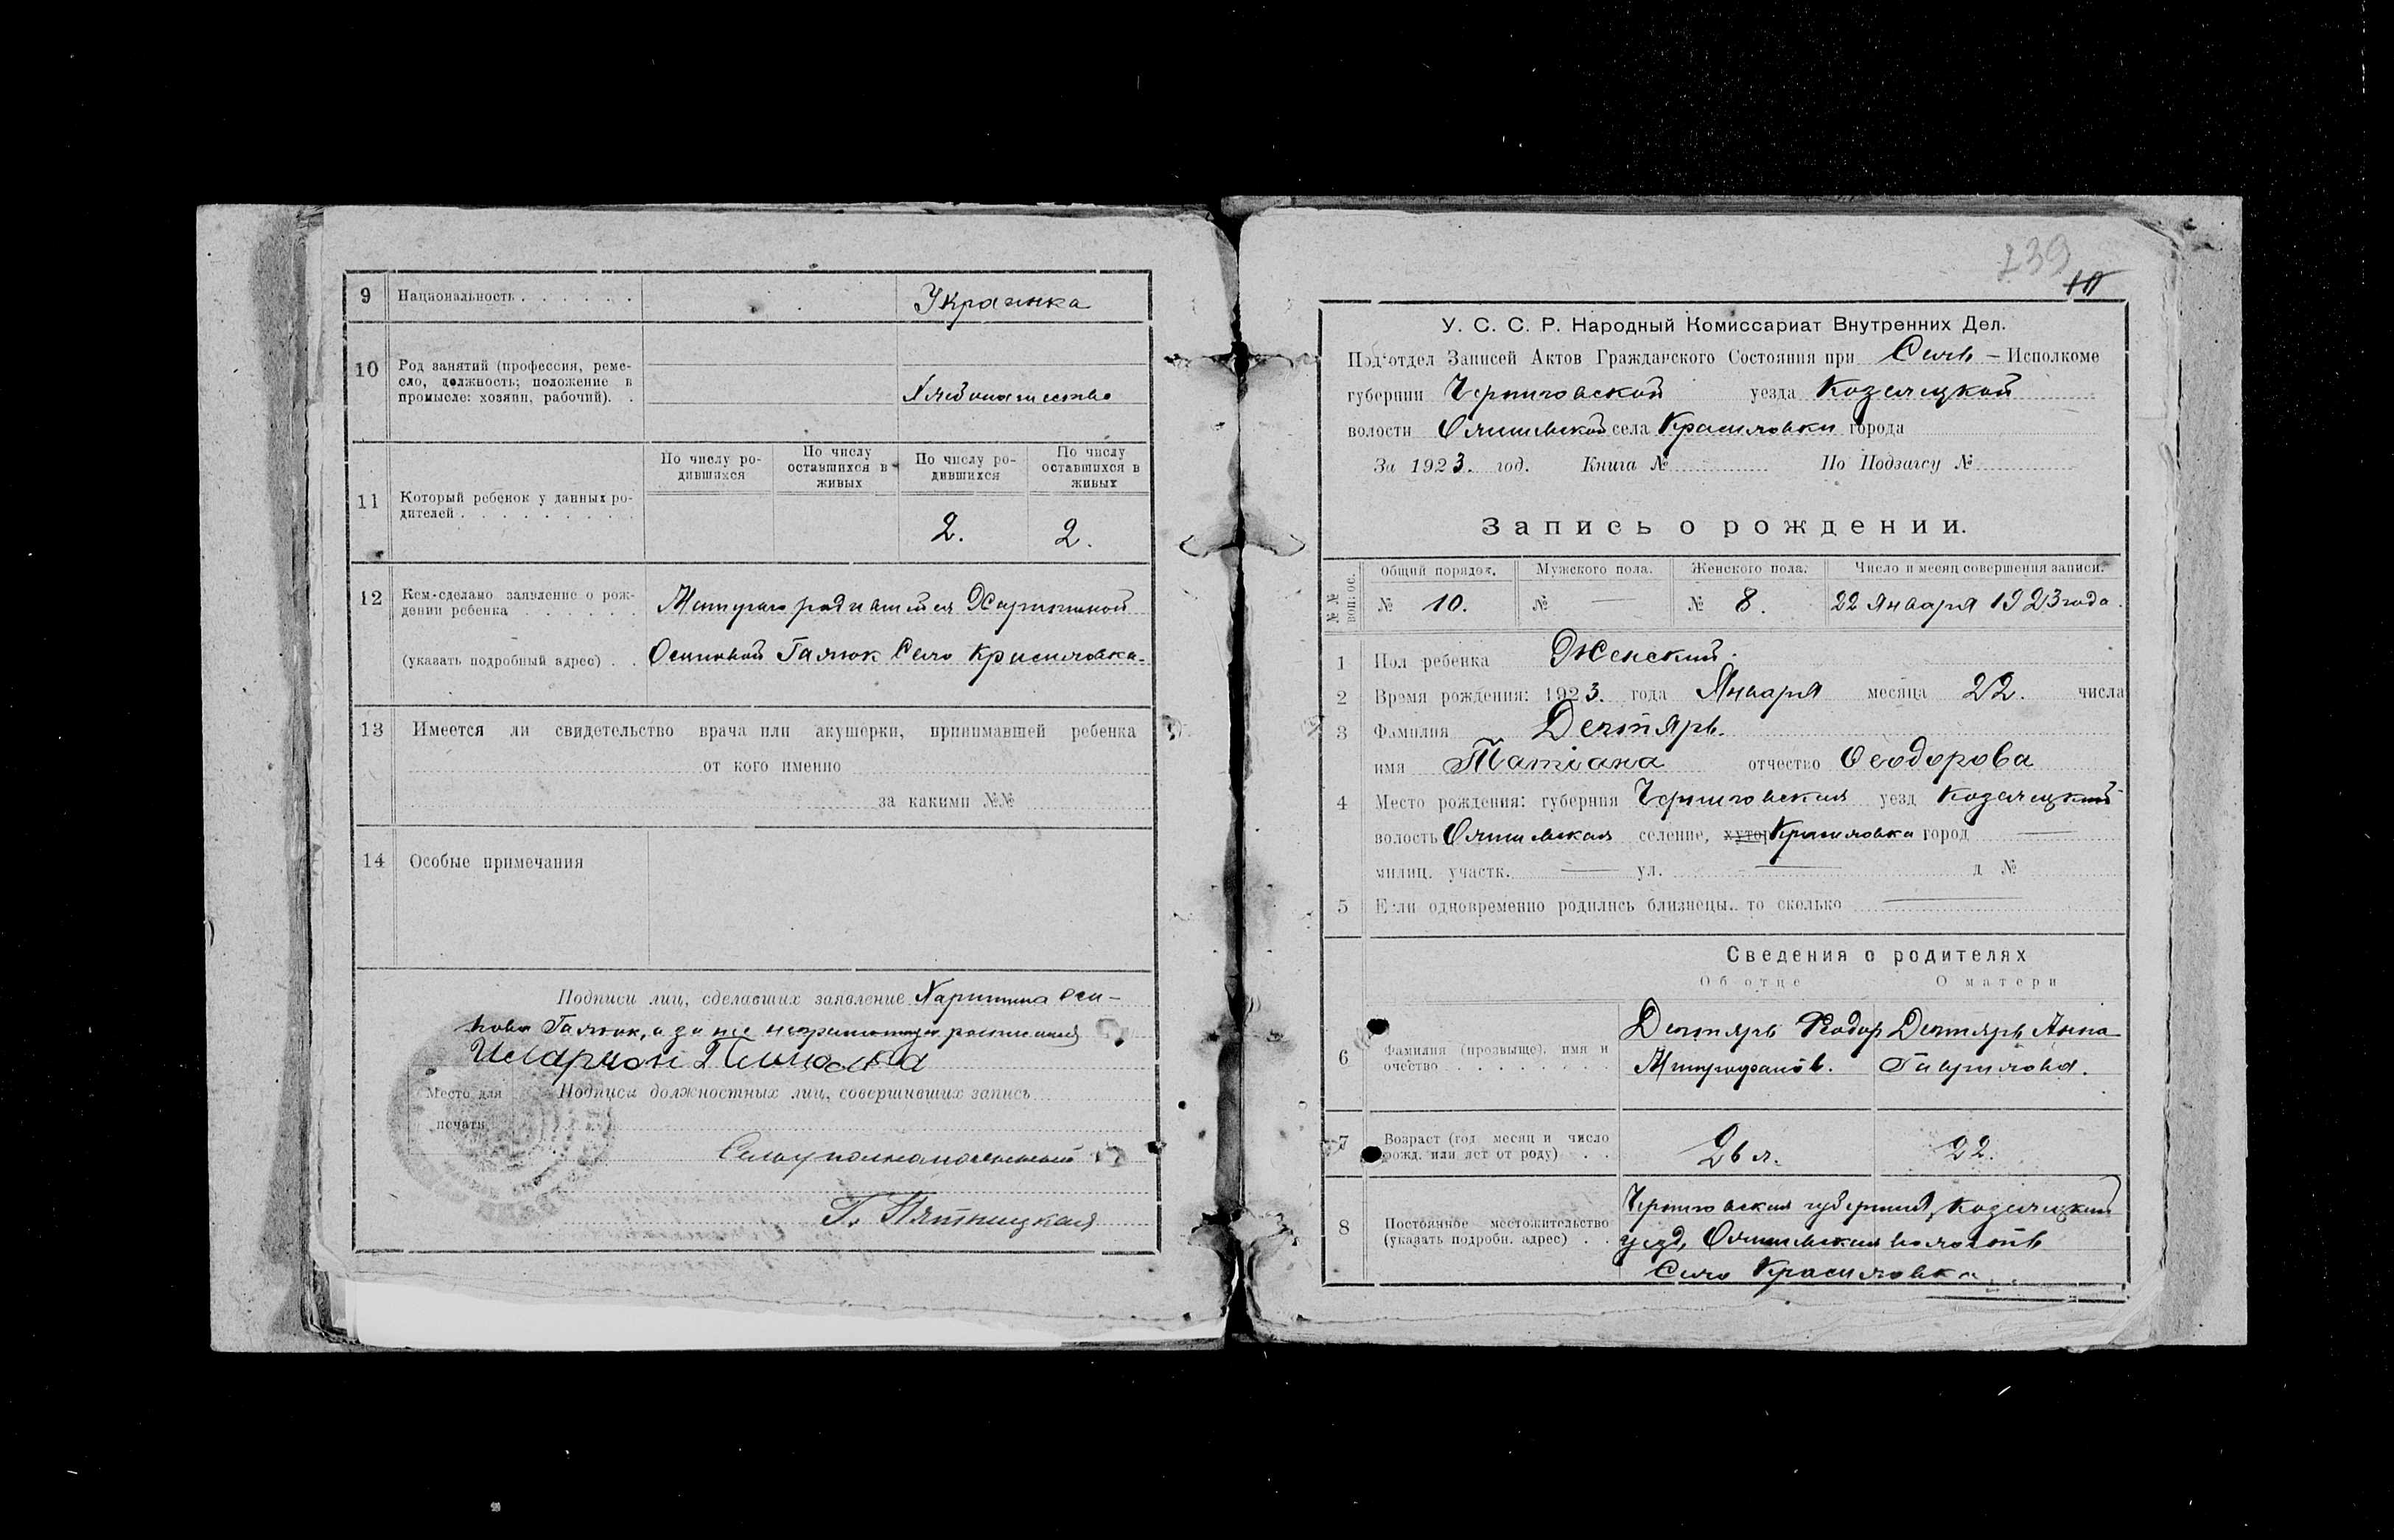 9 Национальность . . . . . . Украинка
10 Род занятий (профессия, реме-
сло, должность; положение в
промысле: хозяин, рабочий). . Хлебопашество
По числу ро-
дившихся
По числу
оставшихся в
живых
По числу ро-
дившихся
По числу
оставшихся в
живых
11 Который ребенок у данных ро-
дителей . . . . . . . . . 2. 2.
12 Кем сделано заявление о рож-
дении ребенка . . . . . . родившейся Харитиной
(указать подробный адрес) . . Осиповой Галюк Село Красиловка.
13 Имеется ли свидетельство врача или акушерки, принимавшей ребенка
от кого именно
за какими №№
14 Особые примечания
Подписи лиц, сделавших заявление Харитина Оси-
пова Галюк, а за нее неграмотную
Иларион
Место для
печати
Подписи должностных лиц, совершивших запись
Селоуполномоченный
Г. Пятницкая
239
10
У. С. С. Р. Народный Комиссариат Внутренних Дел.
Подотдел Записей Актов Гражданского Состояния при Сель – Исполкоме
губернии Черниговской уезда Козелецкой
волости Олишевской села Красиловки города
За 1923. год. Книга № По Подзагсу №
Запись о рождении.
№ №
вопрос.
Общий порядок. Мужского пола. Женского пола. Число и месяц совершения записи.
№ 10. № — № 8. 22 Января 1923 года.
1 Пол ребенка Женский.
2 Время рождения: 1923. года Января месяца 22. числа
3 Фамилия Дегтярь.
имя Татіана отчество Феодорова
4 Место рождения: губерния Черниговская уезд Козелецкий
волость Олишевская селение, хутор Красиловка город —
милиц. участк. — ул. — д №
5 Если одновременно родились близнецы.. то сколько —
Сведения о родителях
Об отце О матери
6 Фамилия (прозвыще), имя и
очество . . . . . . . . .
Дегтярь Феодор
Митрофанов.
Дегтярь Анна
Гаврилова.
7 Возраст (год месяц и число
рожд. или лет от роду) . . 26 л. 22.
8 Постоянное местожительство
(указать подробн. адрес) . .
Черниговская губерния, Козелецкий
уезд, Олишевская волость
Село Красиловка